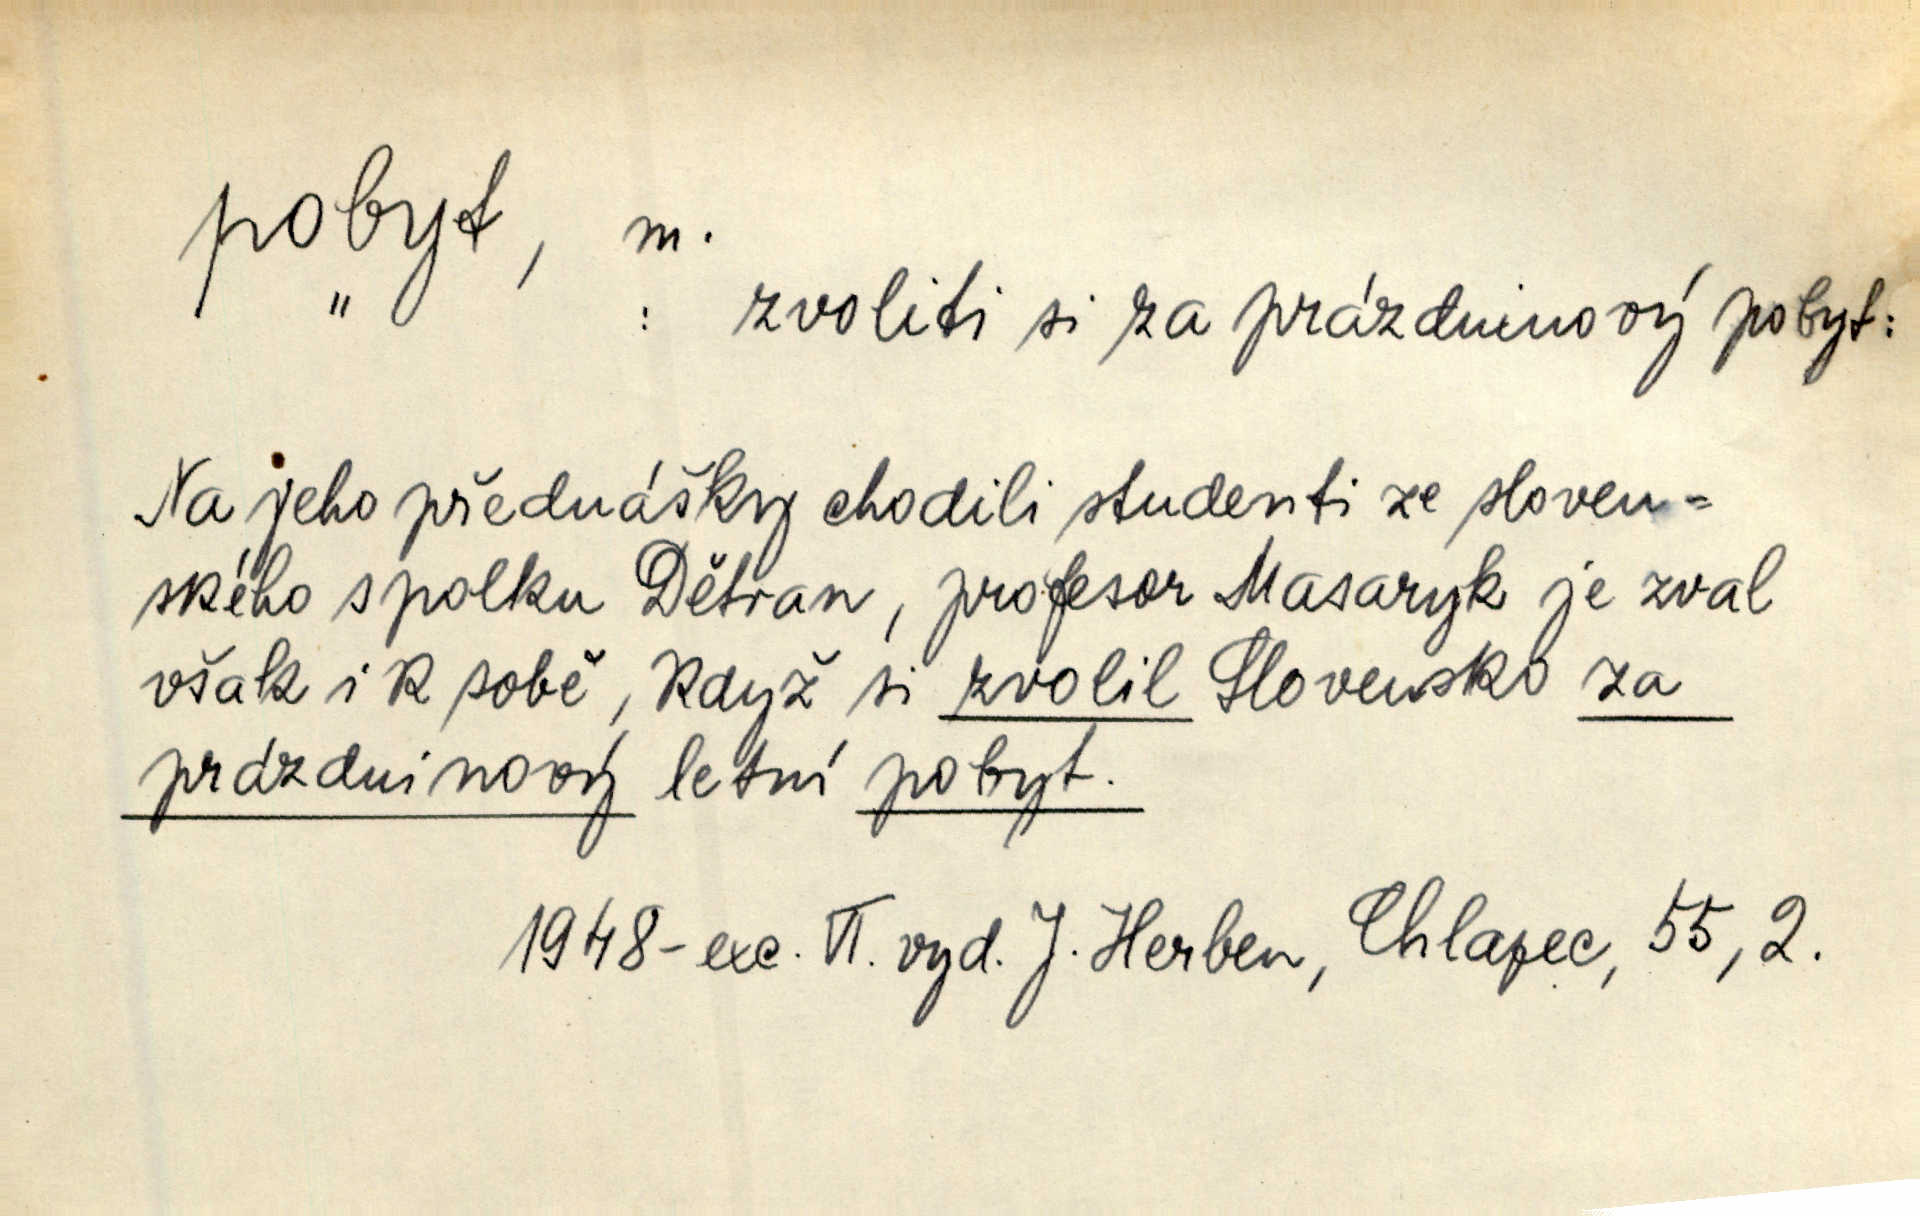 pobyt, m.
" : zvoliti si za prázdninový pobyt:
Na jeho přednášky chodili studenti ze sloven=
ského spolku Dětvan, profesor Masaryk je zval
však i k sobě, když si zvolil Slovensko za
prázdninový letní pobyt.
1948 - exc. VI. vyd. J. Herben, Chlapec, 55, 2.